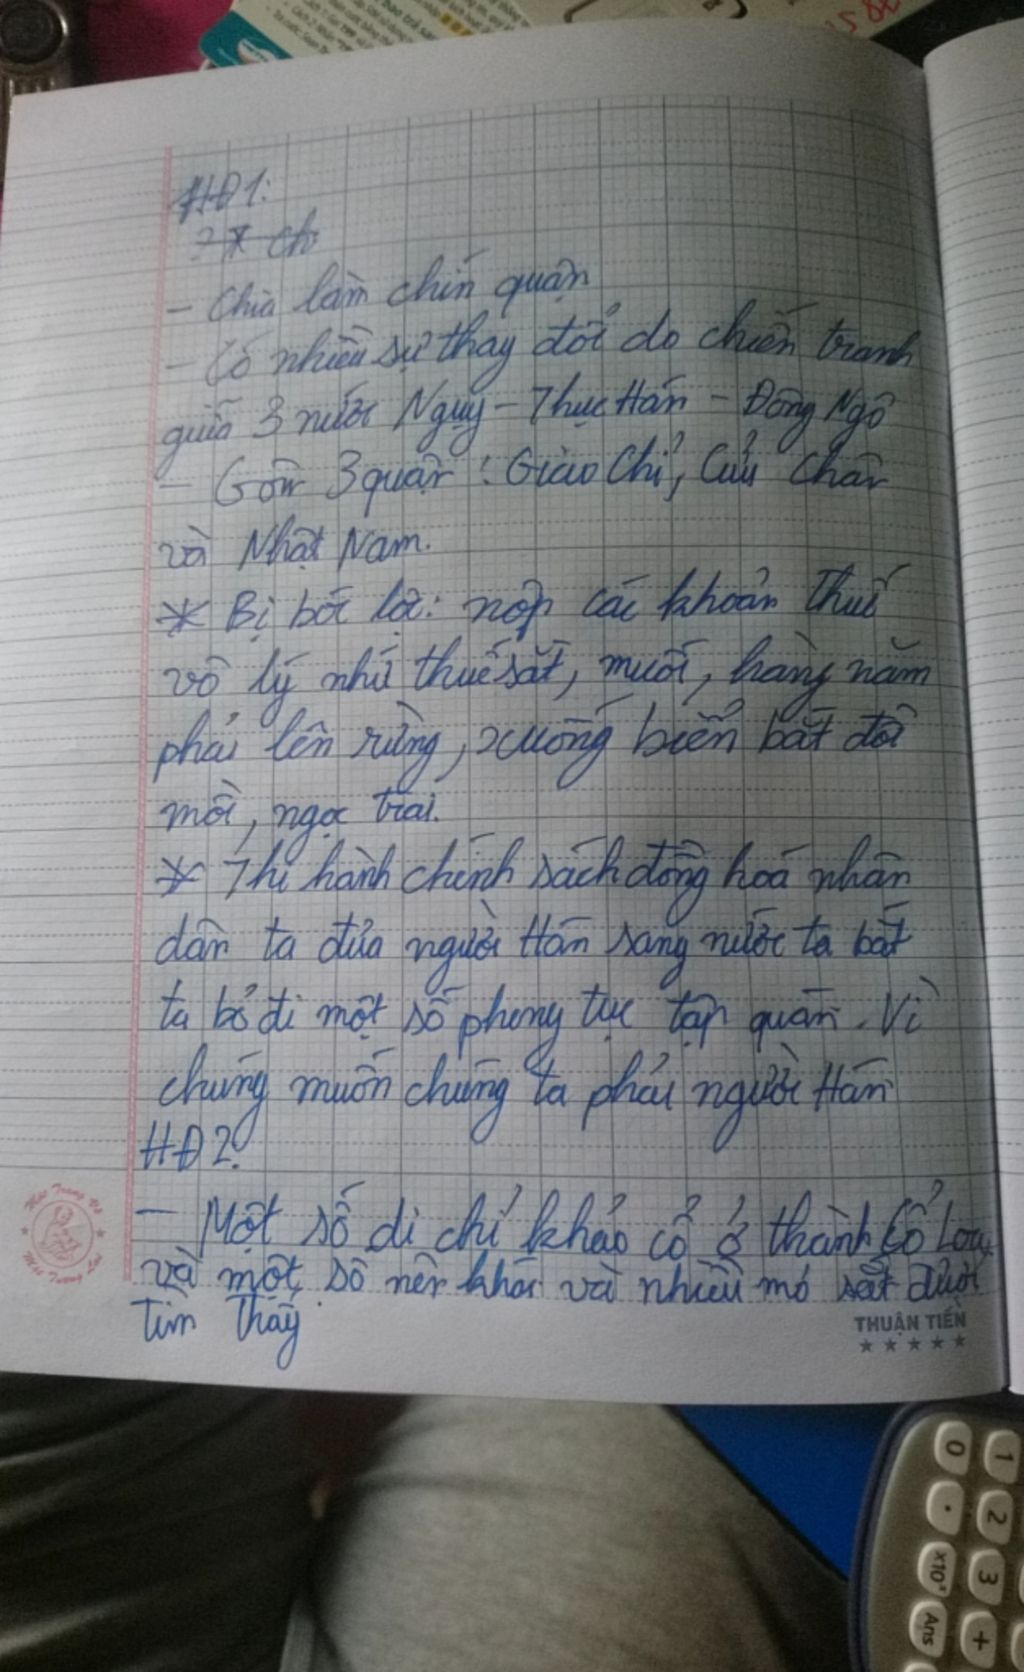 HĐ1:
- Chia làm chín quận
- Có nhiều sự thay đổi do chiến tranh
giữa 3 nước Ngụy - Thục Hán - Đông Ngô
- Gồm 3 quận: Giao Chỉ, Cửu Chân
và Nhật Nam.
* Bị bót lột: nộp các khoản thuế
vô lý như thuế sắt, muối, hàng năm
phải lên rừng, xuống biển bắt đồi
mồi, ngọc trai.
* Thi hành chính sách đồng hoá nhân
dân ta đưa người Hán sang nước ta bắt
ta bỏ đi một số phong tục tập quán. Vì
chúng muốn chúng ta phải người Hán
HĐ2:
- Một số di chỉ khảo cổ ở thành Cổ Loa,
và một số nền khác và nhiều mó sắt được
tìm thấy
THUẬN TIẾN